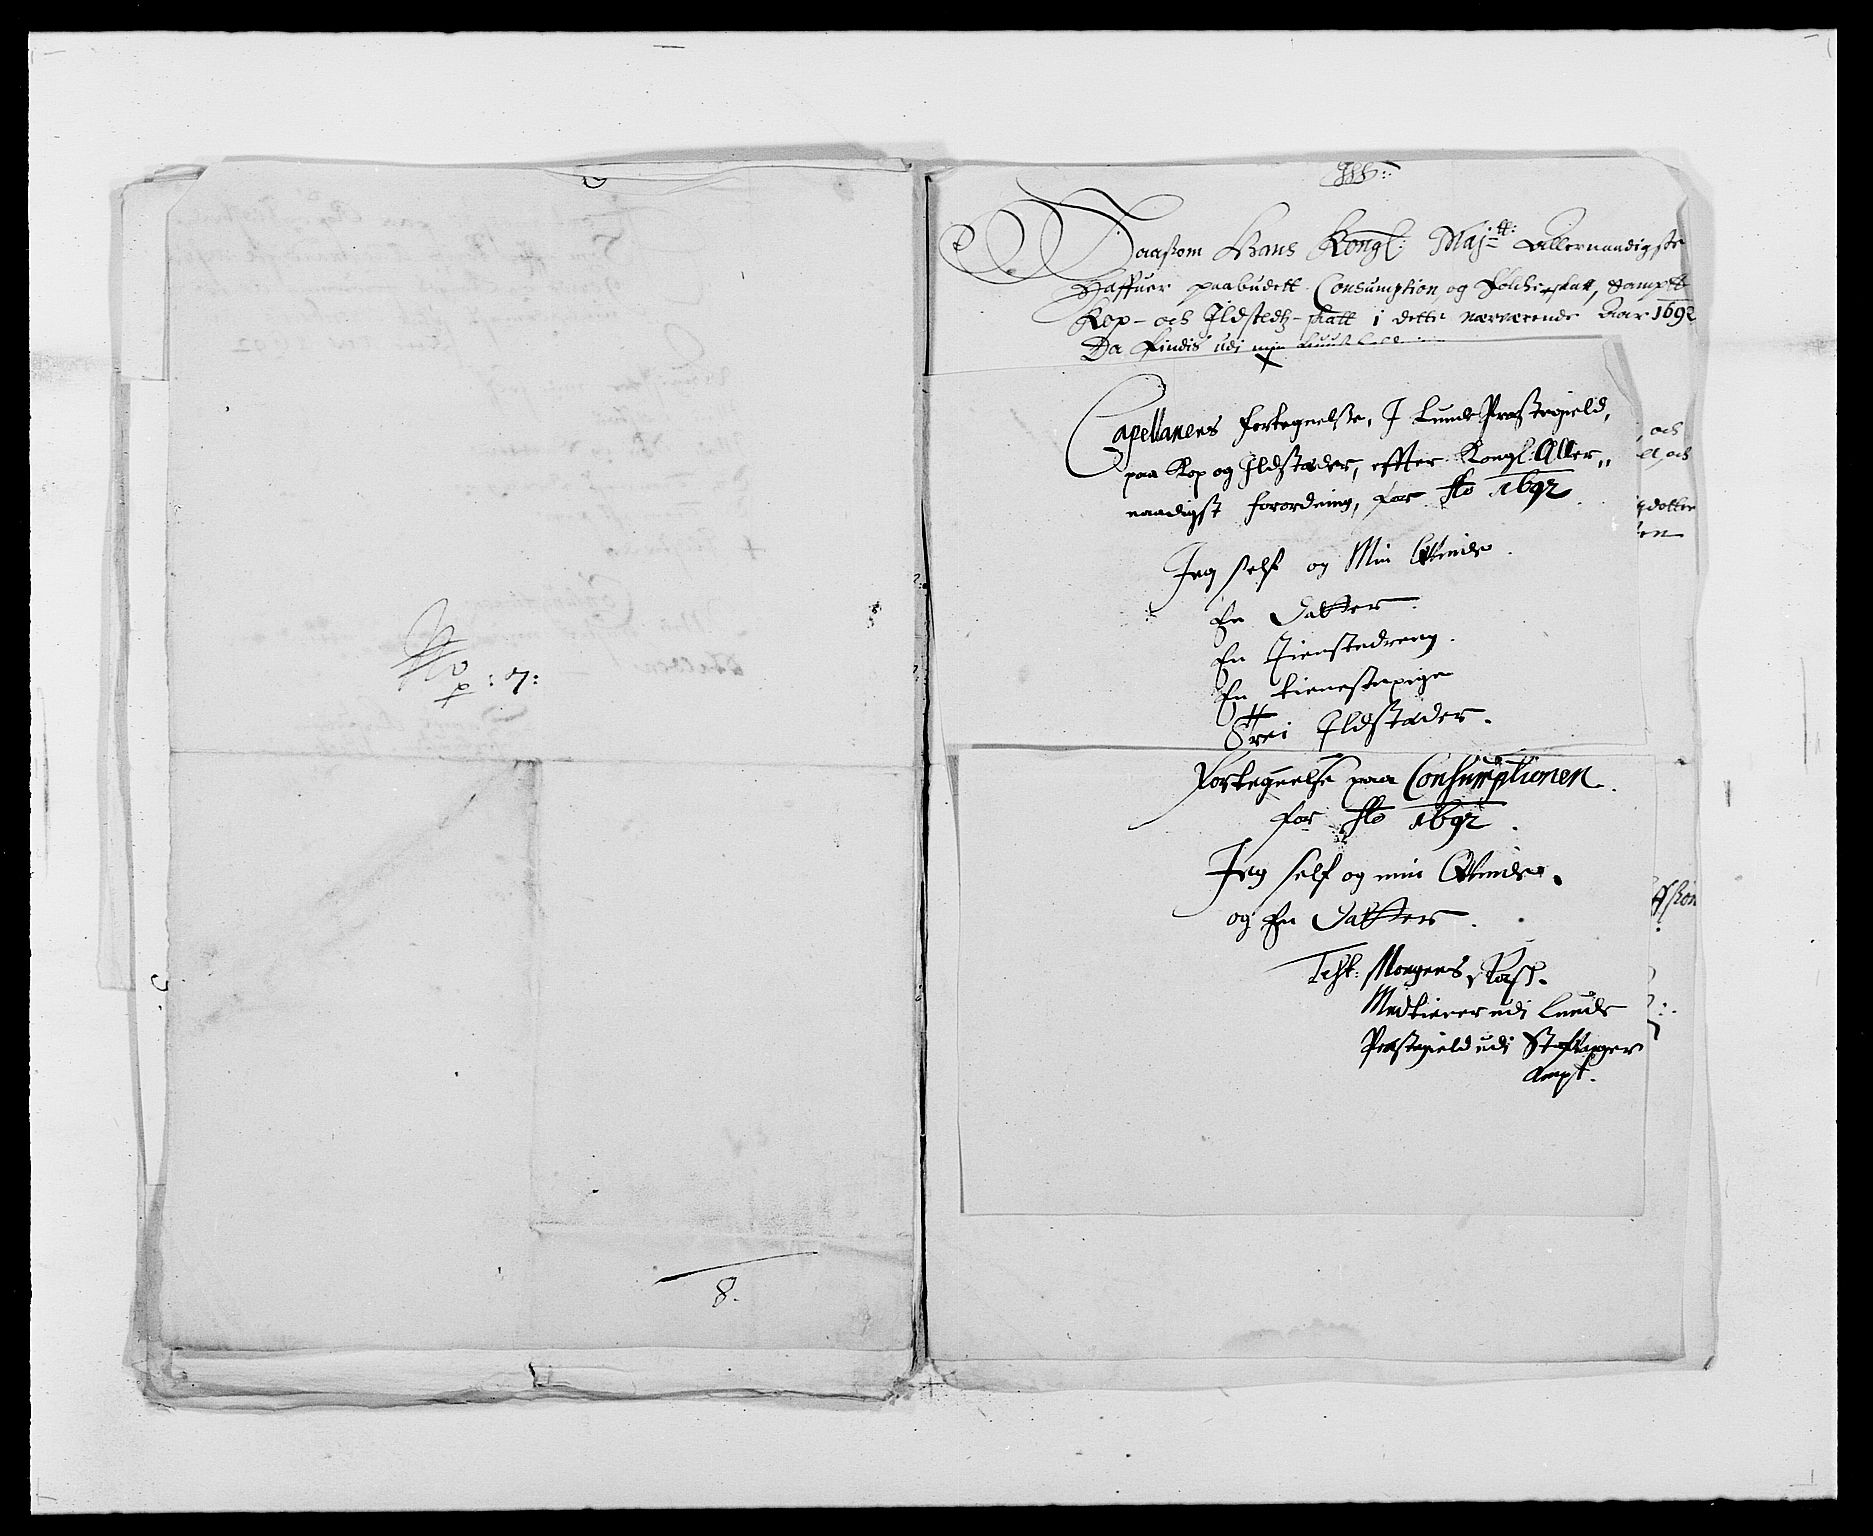 No
p : 7:
8.
Daasom Hans Kongl: Maj:tt: Allernaadigste
Haffuer paabudett Consumption og Folcheskatt, Sampt
Kop- och Ildstedtz-skatt i dette nærværende Aar 1692
Da Findis udi min
Capellanens Fortegnelse, I Lunde Præstegield,
paa Kop og Ildstæder, effter Kongl: Aller„
naadigst forordning, for Ao 1692
Jeg self og Min Quinde.
En Datter.
En Tienistedreng.
En tienestepige
Trei Ildstæder.
Fortegnelse paa Consumptionen.
for Ao 1692.
Jeg self og min Quinde.
og En Datter.
Test: Mogens Rasch.
Medtiener udi Lunde
Præstegield udi Stafuanger
Ampt.
, och
dotter